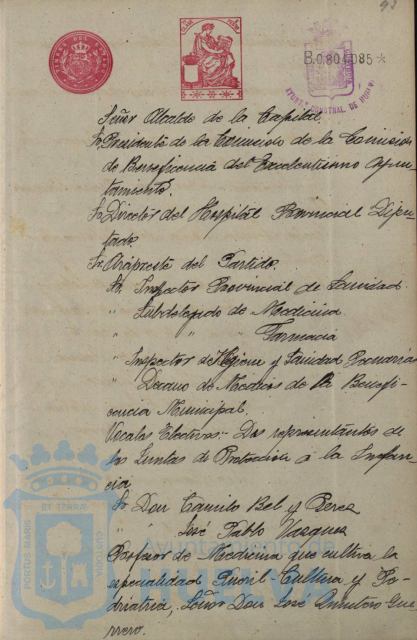 92
CLASE
B.0.804.085*
AYUNT. CONSTNAL. DE HUELVA
Señor Alcalde de la Capital.
Sr. Presidente de la Comisión de la Comisión
de Beneficencia del Excelentísimo Ayun-
tamiento.
Sr. Director del Hospital Provincial Dipu-
tado.
Sr. Arcipreste del Partido.
Sr. Inspector Provincial de Sanidad.
" Subdelegado de Medicina
" " Farmacia
" Inspector de Higiene y Sanidad Pecuarias
" Decano de Medicos de la Benefi-
cencia Municipal.
Vocales Electivos:- Dos representantes de
las Juntas de Protección á la Infan-
cia
Sr. Don Camilo Bel y Perez
" " José Pablo Vazquez
Profesor de Medicina que cultiva la
especialidad Pueril-Cultura y Pe-
diatria, Señor Don José Guer-
rero.
PORTUS MARIS ET TERRAE CUSTODIA
Ayuntamiento
HUELVA